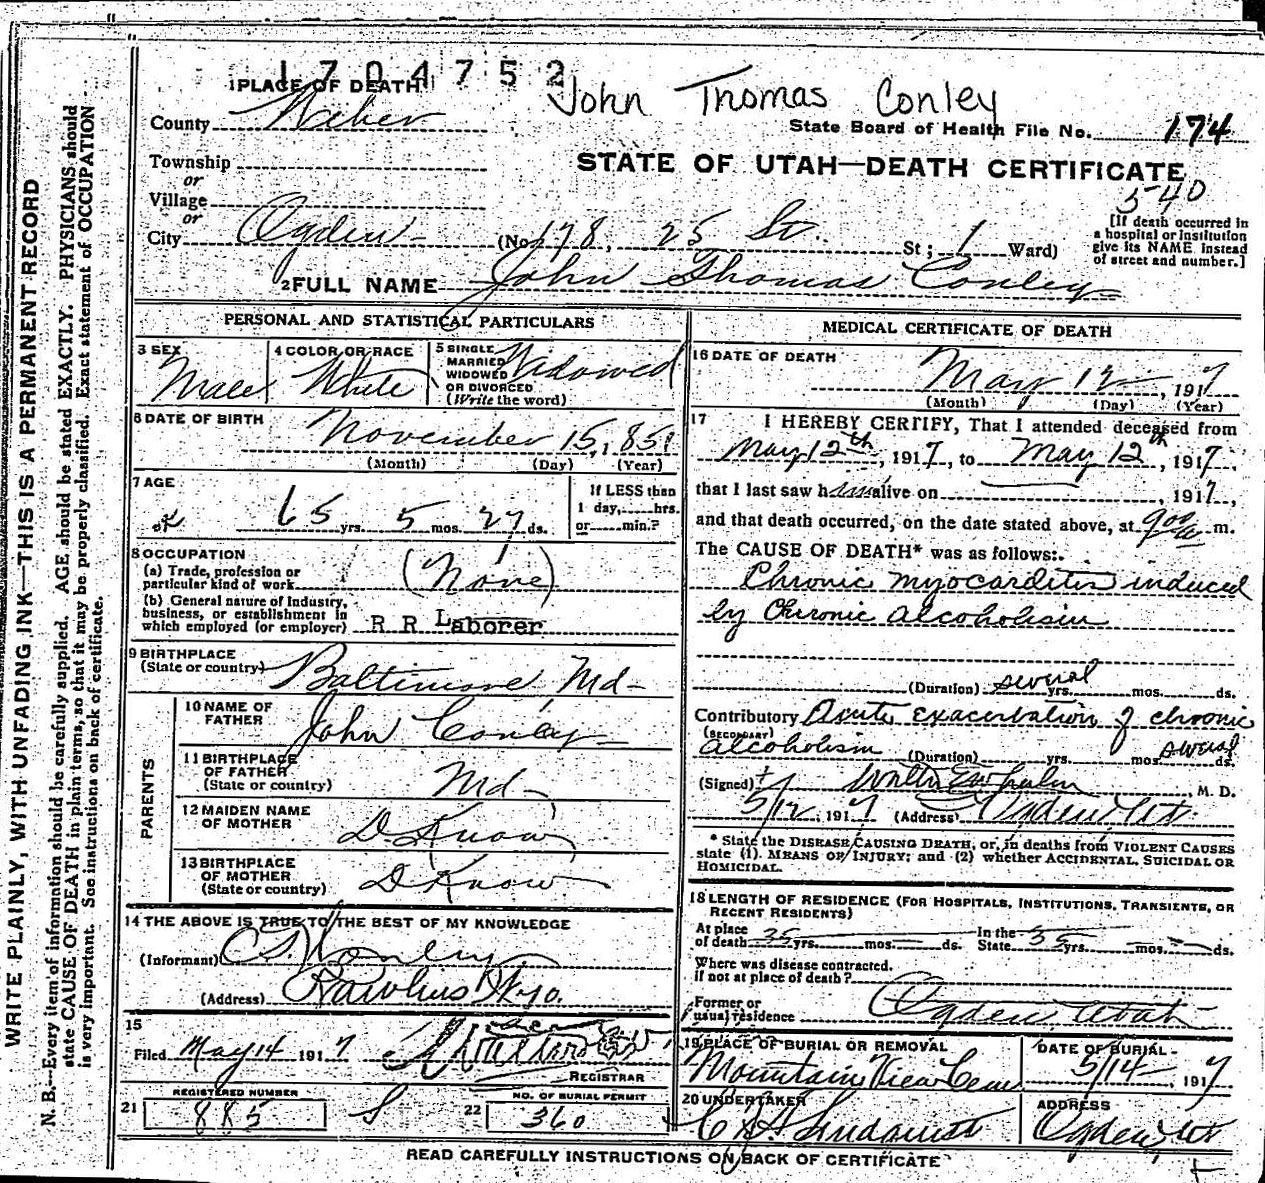 1704752
John Thomas Conley
1 PLACE OF DEATH
County Weber
State Board of Health File No. 174
Township
or
STATE OF UTAH—DEATH CERTIFICATE
540
Village
or
City Ogden (No. 178, 25 St. St; 1 Ward)
[If death occurred in
a hospital or institution
give its NAME instead
of street and number.]
2 FULL NAME John Thomas Conley
PERSONAL AND STATISTICAL PARTICULARS
3 SEX Male
4 COLOR OR RACE White
5 SINGLE
MARRIED
WIDOWED
OR DIVORCED
(Write the word)
Widowed
6 DATE OF BIRTH
November 15, 1851
(Month) (Day) (Year)
7 AGE
65 yrs. 5 mos. 27 ds.
If LESS than
1 day, hrs.
or min.?
8 OCCUPATION
(a) Trade, profession or
particular kind of work (None)
(b) General nature of Industry,
business, or establishment in
which employed (or employer) R R Laborer
9 BIRTHPLACE
(State or country) Baltimore Md
PARENTS
10 NAME OF
FATHER John Conley
11 BIRTHPLACE
OF FATHER
(State or country) Md
12 MAIDEN NAME
OF MOTHER D. Know
13 BIRTHPLACE
OF MOTHER
(State or country) D Know
14 THE ABOVE IS TRUE TO THE BEST OF MY KNOWLEDGE
(Informant) Conley
(Address) Rawlins Wyo.
15
Filed May 14 1917
REGISTRAR
REGISTERED NUMBER
21 885 S
NO. OF BURIAL PERMIT
22 360
MEDICAL CERTIFICATE OF DEATH
16 DATE OF DEATH
May 12, 1917
(Month) (Day) (Year)
17 I HEREBY CERTIFY, That I attended deceased from
May 12th, 1917, to May 12th, 1917.
that I last saw h alive on , 1917,
and that death occurred, on the date stated above, at 9 00 a m.
The CAUSE OF DEATH* was as follows:
Chronic myocarditis induced
by Chronic alcoholism
(Duration) several yrs. mos. ds.
Contributory Acute exacerbation of chronic
(SECONDARY)
alcoholism (Duration) yrs. mos. several ds.
(Signed) M. D.
5/12, 1917 (Address) Ogden Ut.
* State the DISEASE CAUSING DEATH, or, in deaths from VIOLENT CAUSES
state (1) MEANS OF INJURY; and (2) whether ACCIDENTAL, SUICIDAL OR
HOMICIDAL.
18 LENGTH OF RESIDENCE (FOR HOSPITALS, INSTITUTIONS, TRANSIENTS, OR
RECENT RESIDENTS)
At place
of death 35 yrs. mos. ds.
In the
State 35 yrs. mos. ds.
Where was disease contracted.
if not at place of death?
Former or
usual residence Ogden, Utah
19 PLACE OF BURIAL OR REMOVAL
Mountain View Cem
DATE OF BURIAL
5/14, 1917
20 UNDERTAKER
Lindquist
ADDRESS
Ogden, Ut
READ CAREFULLY INSTRUCTIONS ON BACK OF CERTIFICATE
WRITE PLAINLY, WITH UNFADING INK—THIS IS A PERMANENT RECORD
N. B.—Every item of information should be carefully supplied. AGE should be stated EXACTLY. PHYSICIANS should
state CAUSE OF DEATH in plain terms, so that it may be properly classified. Exact statement of OCCUPATION
is very important. See instructions on back of certificate.